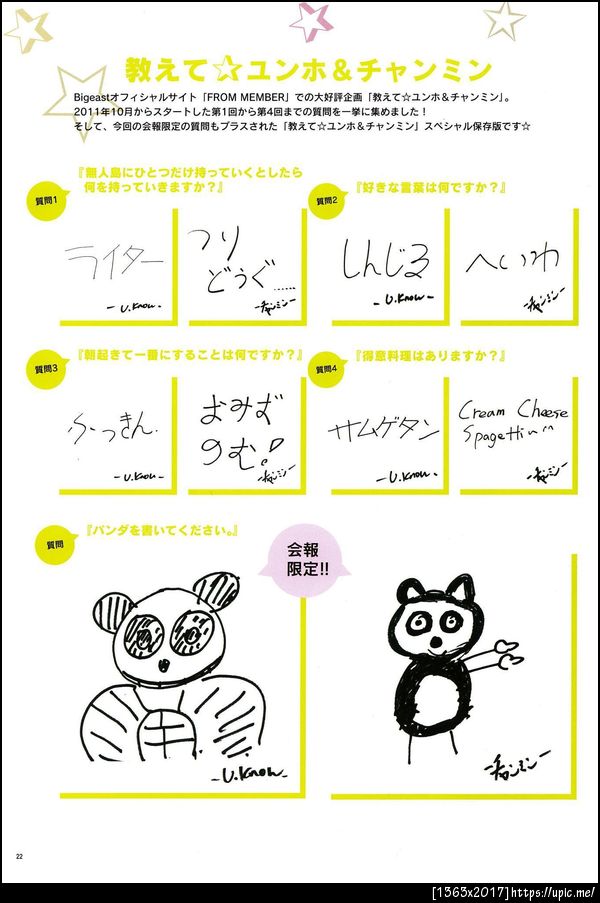 教えて☆ユンホ＆チャンミン
Bigeastオフィシャルサイト「FROM MEMBER」での大好評企画「教えて☆ユンホ＆チャンミン」。
2011年10月からスタートした第1回から第4回までの質問を一挙に集めました！
そして、今回の会報限定の質問もプラスされた「教えて☆ユンホ＆チャンミン」スペシャル保存版です☆
質問1
『無人島にひとつだけ持っていくとしたら
何を持っていきますか？』
ライター
-U.Know-
つり
どうぐ……
-チャンミン-
質問2
『好きな言葉は何ですか？』
しんじる
-U.Know-
へいわ
-チャンミン-
質問3
『朝起きて一番にすることは何ですか？』
ふっきん.
-U.Know-
おみず
のむ!
-チャンミン-
質問4
『得意料理はありますか？』
サムゲタン
-U.Know-
Cream Cheese
Spagettin^^
-チャンミン-
質問
『パンダを書いてください。』
会報
限定!!
-U.Know-
-チャンミン-
22
[1363x2017]https://upic.me/